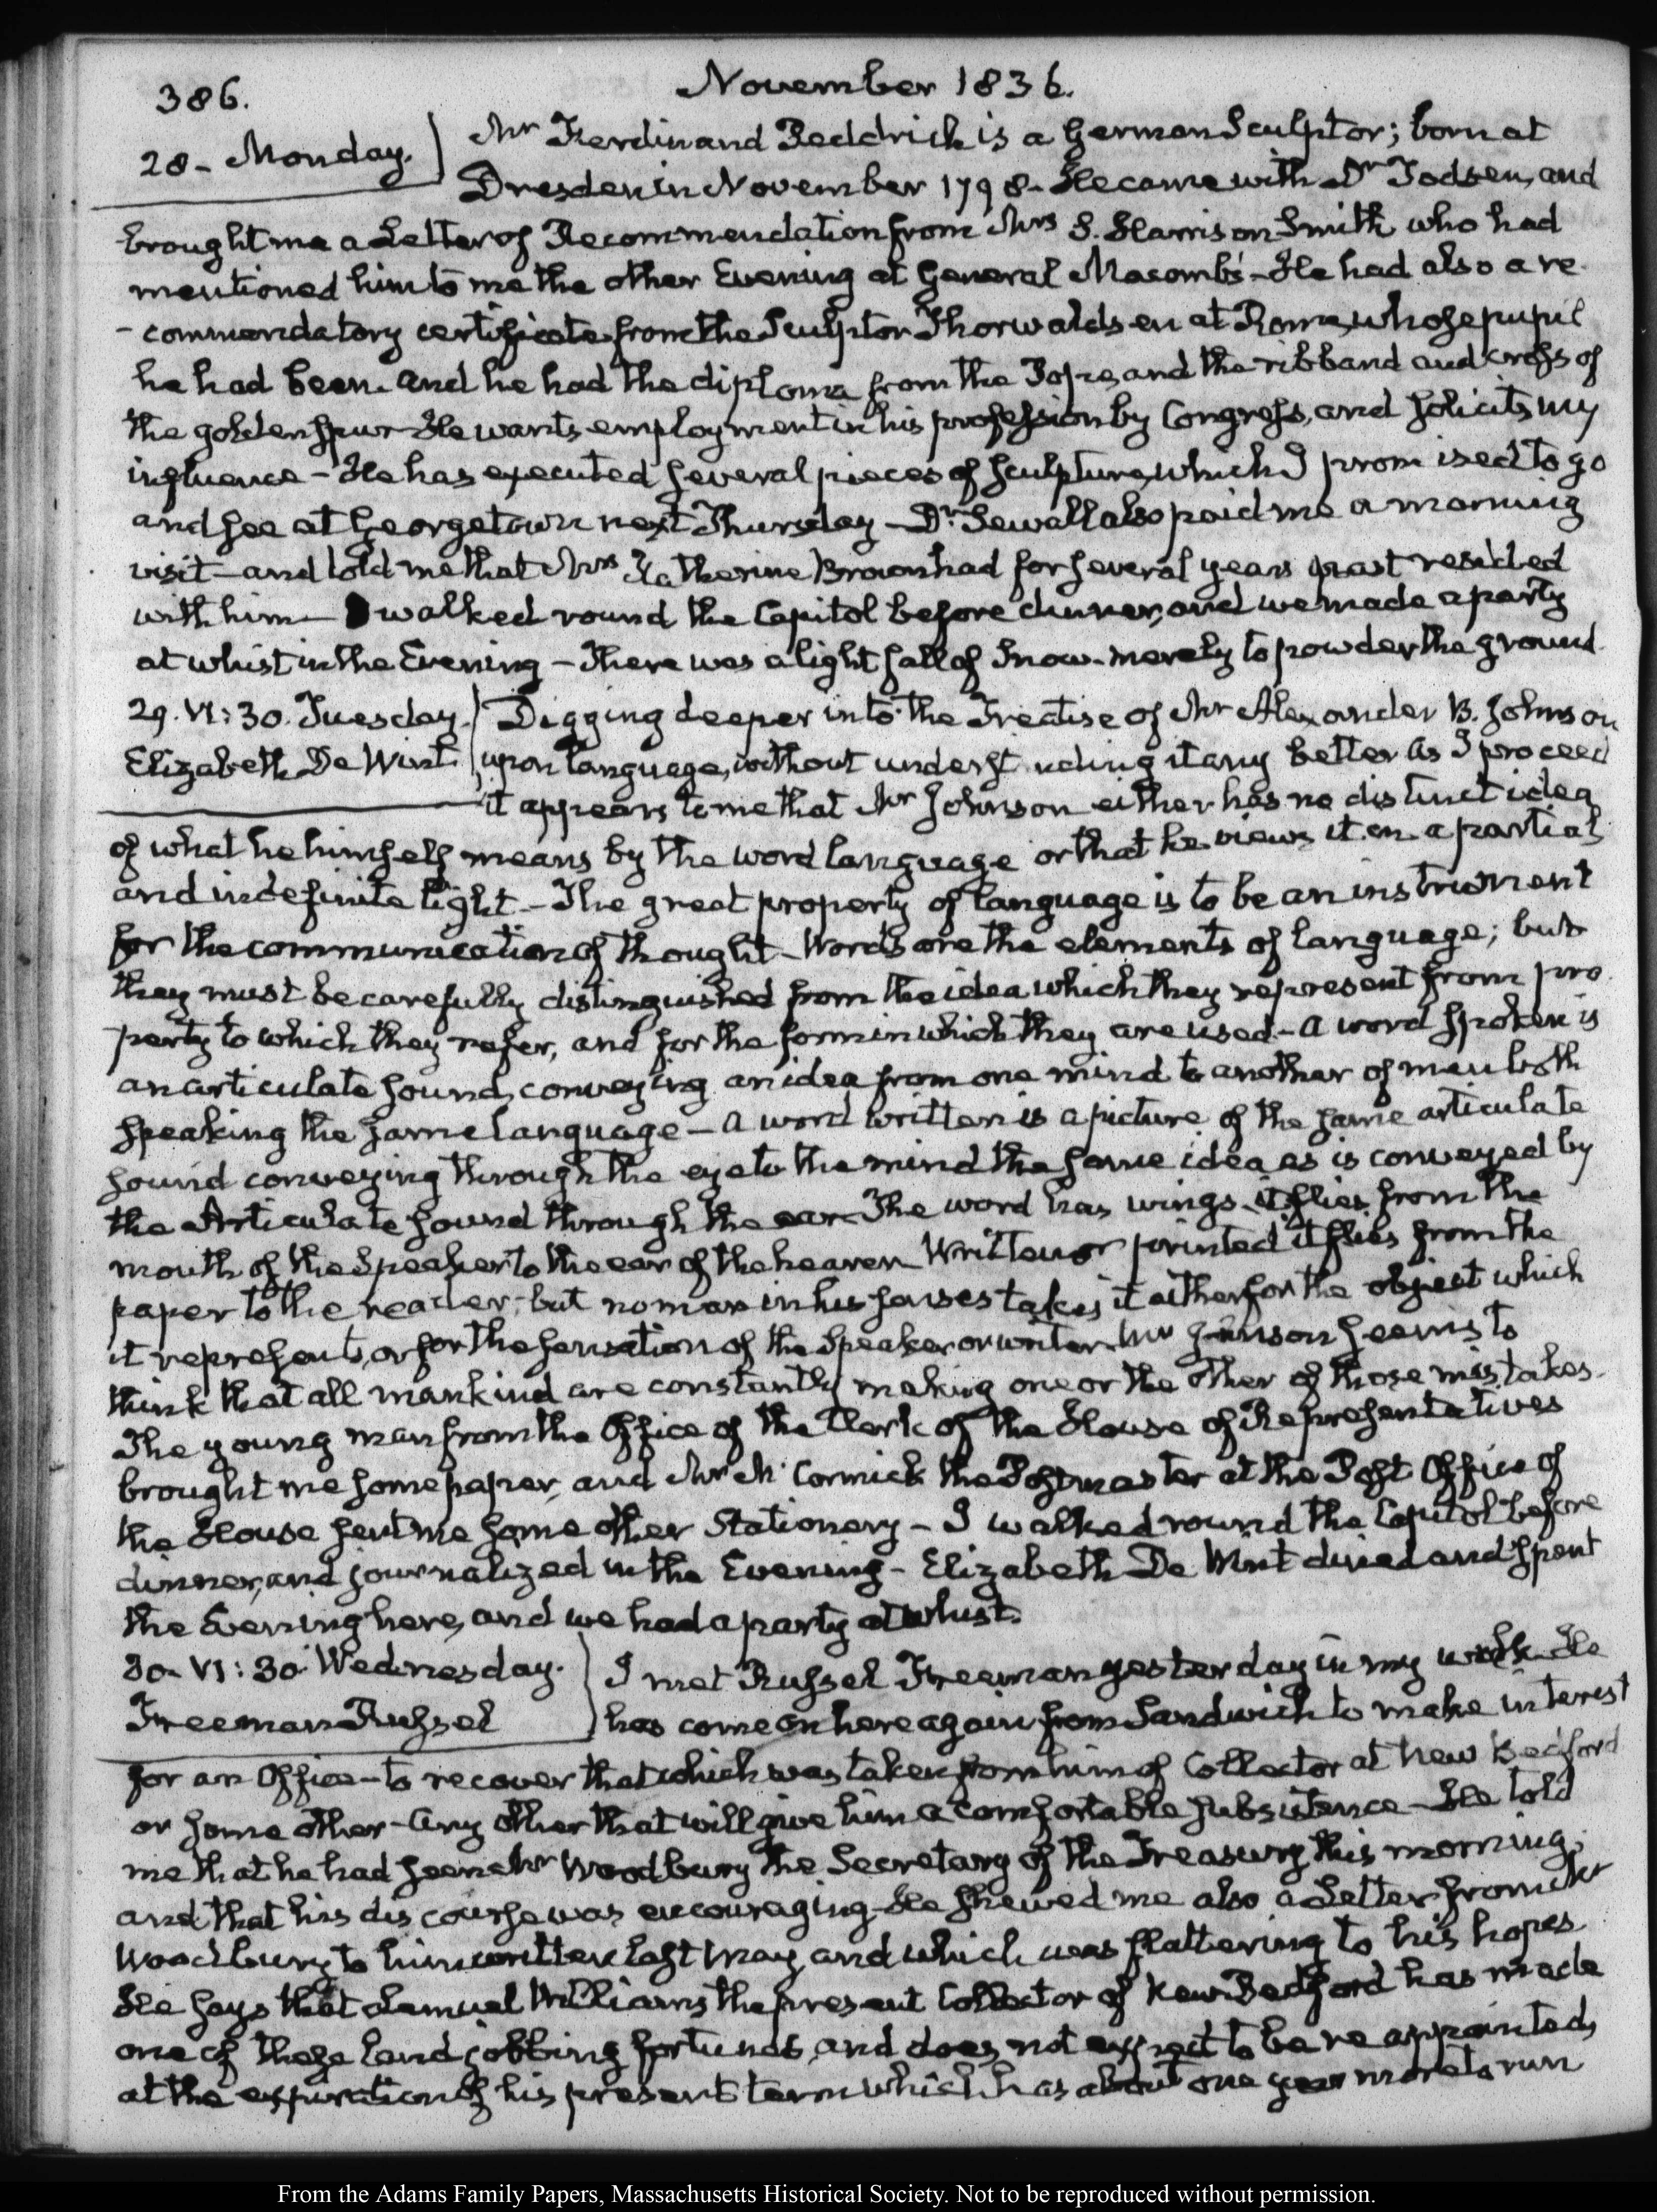 386.
November 1836.
28 - Monday.
Mr Ferdinand Pettrich is a German Sculptor; born at
Dresden in November 1798. He came with Dr Todsen, and
brought me a Letter of Recommendation from Mrs S. Harrison Smith who had
mentioned him to me the other Evening at General Macomb's - He had also a re-
-commendatory certificate from the Sculptor Thorwaldsen at Rome, whose pupil
he had been. and he had the diploma from the Pope, and the ribband and cross of
the golden spur - He wants employment in his profession by Congress, and solicits my
influence - He has executed several pieces of sculpture, which I promised to go
and see at Georgetown next Thursday - Dr Sewall also paid me a morning
visit - and told me that Mrs Katherine Brown had for several years past resided
with him - I walked round the Capitol before dinner, and we made a party
at whist in the Evening - There was a light fall of Snow - merely to powder the ground.
29. VI:30. Tuesday.
Elizabeth De Wint
Digging deeper into the Treatise of Mr Alexander B. Johnson
upon language, without understanding it any better as I proceed
it appears to me that Mr Johnson either has no distinct idea
of what he himself means by the word language or that he views it in a partial
and indefinite light - The great property of language is to be an instrument
for the communication of thought - Words are the elements of language; but
they must be carefully distinguished from the idea which they represent from pro
perty to which they refer, and for the form in which they are used - A word spoken is
an articulate sound, conveying an idea from one mind to another of men both
speaking the same language - A word written is a picture of the same articulate
sound conveying through the eye to the mind the same idea as is conveyed by
the Articulate sound through the ear - The word has wings - it flies from the
mouth of the Speaker to the ear of the hearer - Written or printed it flies from the
paper to the reader; but no man in his senses takes it either for the object which
it represents, or for the sensation of the Speaker or writer - Mr Johnson seems to
think that all mankind are constantly making one or the other of those mistakes.
The young man from the Office of the Clerk of the House of Representatives
brought me some paper, and Mr McCormick the Postmaster at the Post Office of
the House sent me some other Stationery - I walked round the Capitol before
dinner, and journalized in the Evening - Elizabeth De Wint dined and spent
the Evening here, and we had a party at whist.
30. VI:30. Wednesday.
Freeman Russel
I met Russel Freeman yesterday in my walk - He
has come on here again from Sandwich to make interest
for an Office - to recover that which was taken from him of Collector at New Bedford
or some other - any other that will give him a comfortable subsistence - He told
me that he had seen Mr Woodbury the Secretary of the Treasury this morning,
and that his discourse was encouraging - He shewed me also a Letter from Mr
Woodbury to him written last May, and which was flattering to his hopes
He says that Lemuel Williams, the present Collector of New Bedford has made
one of these land jobbing fortunes, and does not expect to be re appointed,
at the expiration of his present term which has about one year more to run
From the Adams Family Papers, Massachusetts Historical Society. Not to be reproduced without permission.